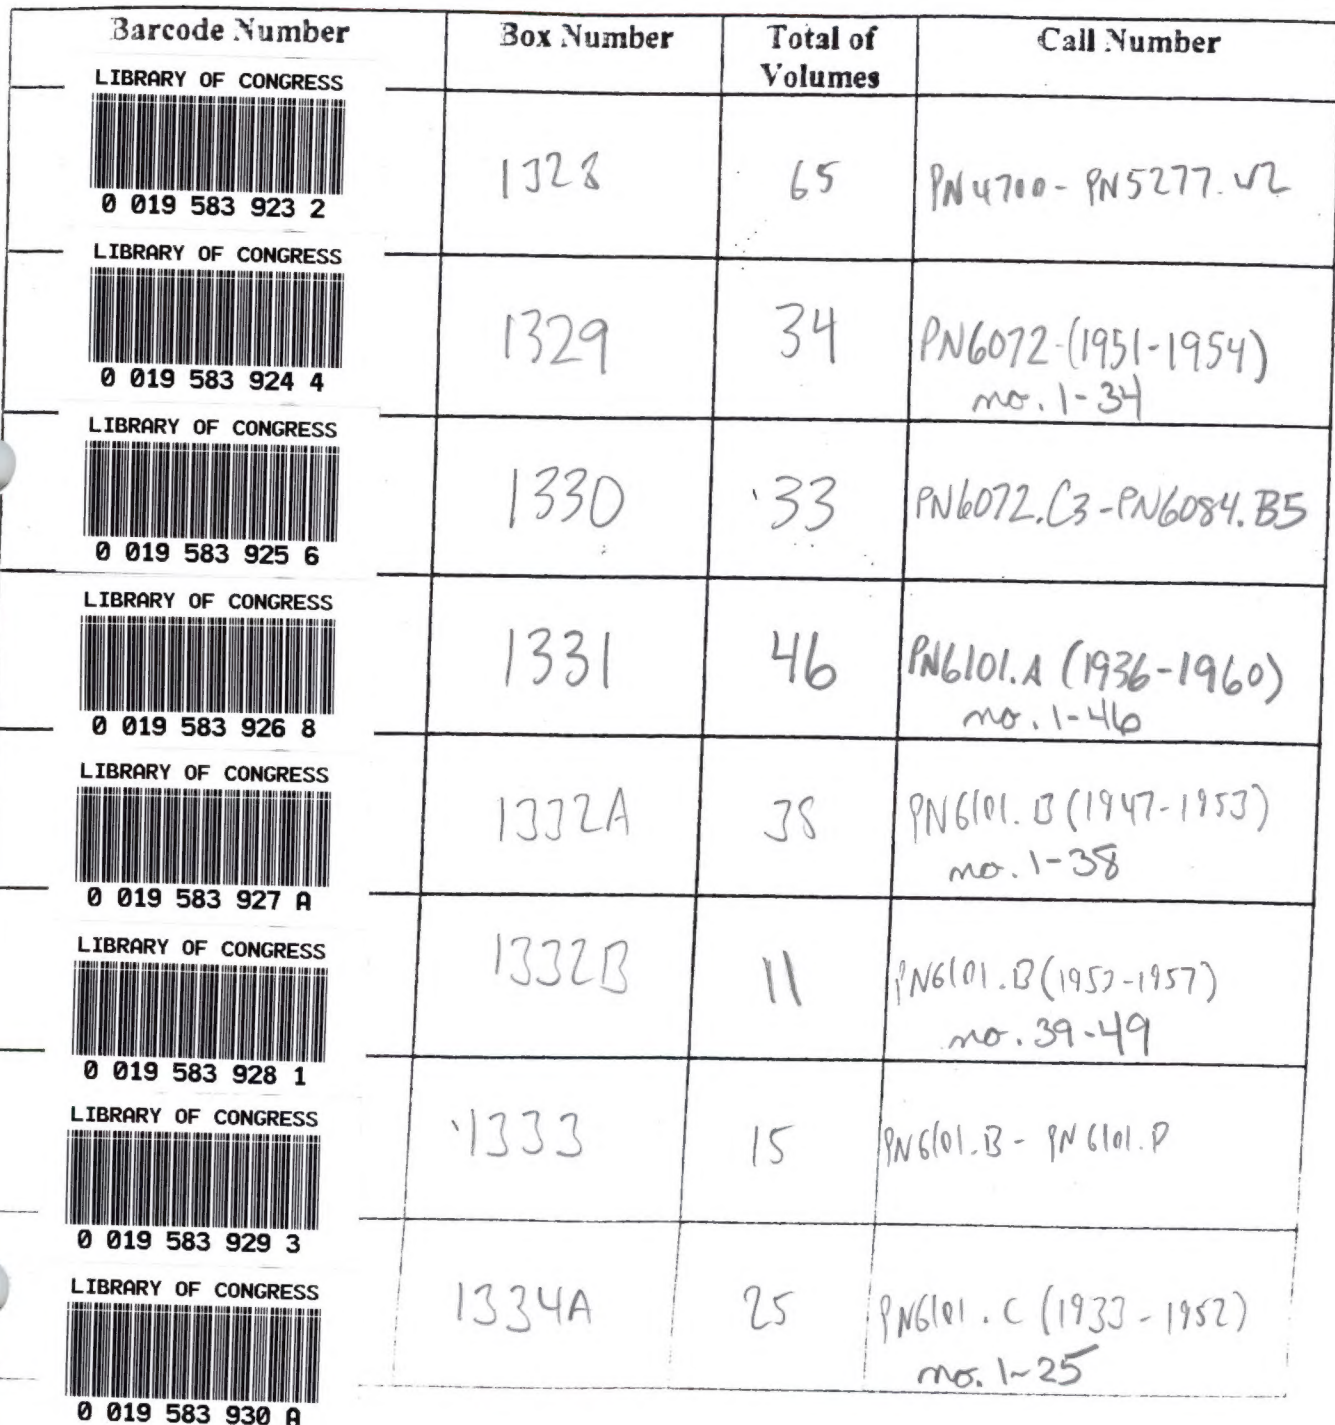 Barcode Number Box Number Total of Volumes Call Number
LIBRARY OF CONGRESS
0 019 583 923 2
1328 65 PN4700- PN5277.W2
LIBRARY OF CONGRESS
0 019 583 924 4
1329 34 PN6072-(1951-1954)
no. 1-34
LIBRARY OF CONGRESS
0 019 583 925 6
1330 33 PN6072.C3-PN6084.B5
LIBRARY OF CONGRESS
0 019 583 926 8
1331 46 PN6101.A (1936-1960)
no. 1-46
LIBRARY OF CONGRESS
0 019 583 927 A
1332A 38 PN6101.B (1947-1953)
no. 1-38
LIBRARY OF CONGRESS
0 019 583 928 1
1332B 11 PN6101.B (1953-1957)
no. 39-49
LIBRARY OF CONGRESS
0 019 583 929 3
1333 15 PN6101.B - PN6101.P
LIBRARY OF CONGRESS
0 019 583 930 A
1334A 25 PN6101.C (1933-1952)
no. 1-25